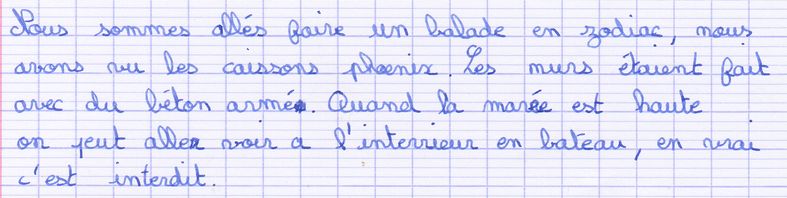 Nous sommes allés faire un balade en zodiac, nous
avons vu les caissons phoenix. Les murs étaient fait
avec du béton armé. Quand la marée est haute
on peut aller voir a l'interrieur en bateau, en vrai
c'est interdit.